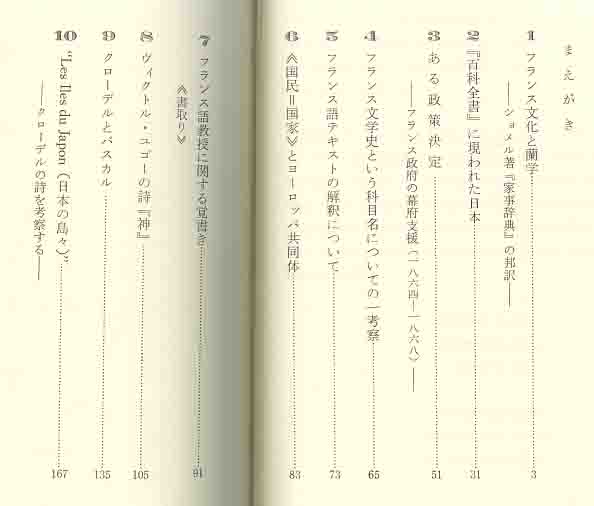 まえがき
1 フランス文化と蘭学 3
――ショメル著『家事辞典』の邦訳――
2 『百科全書』に現われた日本 31
3 ある政策決定 51
――フランス政府の幕府支援（一八六四―一八六八）――
4 フランス文学史という科目名についての一考察 65
5 フランス語テキストの解釈について 73
6 《国民＝国家》とヨーロッパ共同体 83
7 フランス語教授に関する覚書き 91
《書取り》
8 ヴィクトル・ユゴーの詩『神』 105
9 クローデルとパスカル 135
10 “Les Iles du Japon (日本の島々)” 167
――クローデルの詩を考察する――